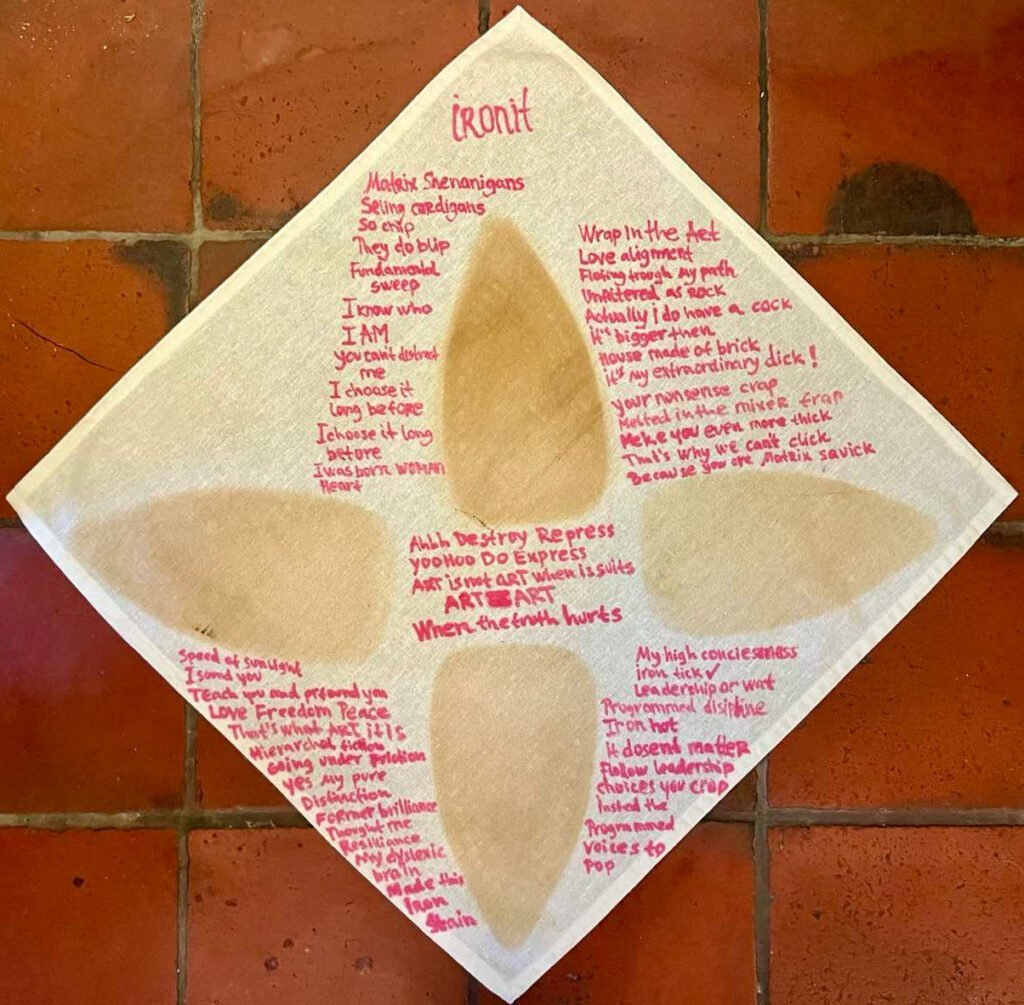 iRonit
Matrix Shenanigans
Seling cardigans
So crip
They do blip
Fundamental
sweep
I know who
I AM
you can't distract
me
I choose it
long before
I choose it long
before
I was born WOMAN
Heart
Wrap In the Art
Love alignment
Floting trough my path
Unfiltered as Rock
Actually i do have a cock
it's bigger then
House made of brick
it's my extraordinary dick!
your nonsense crap
Melted in the mixer trap
Make you even more thick
That's why we can't click
Because you are Matrix savick
Ahhh Destroy Repress
yooHoo Do Express
ART is not ART when is suits
ART = ART
When the truth hurts
Speed of sunlight
I sound you
Teach you and profound you
LOVE Freedom Peace
That's what ART it is
Hierarchal fiction
Going under friction
yes My pure
Distinction
Former brilliance
Thought me
Resilliance
My dyslexic
brain
Made this
Iron
Strain
My high conciesness
iron tick ✓
Leadership or wat
Programmed disipline
Iron hot
It dosent matter
Follow leadership
choices you crop
Insted the
Programmed
voices to
Pop